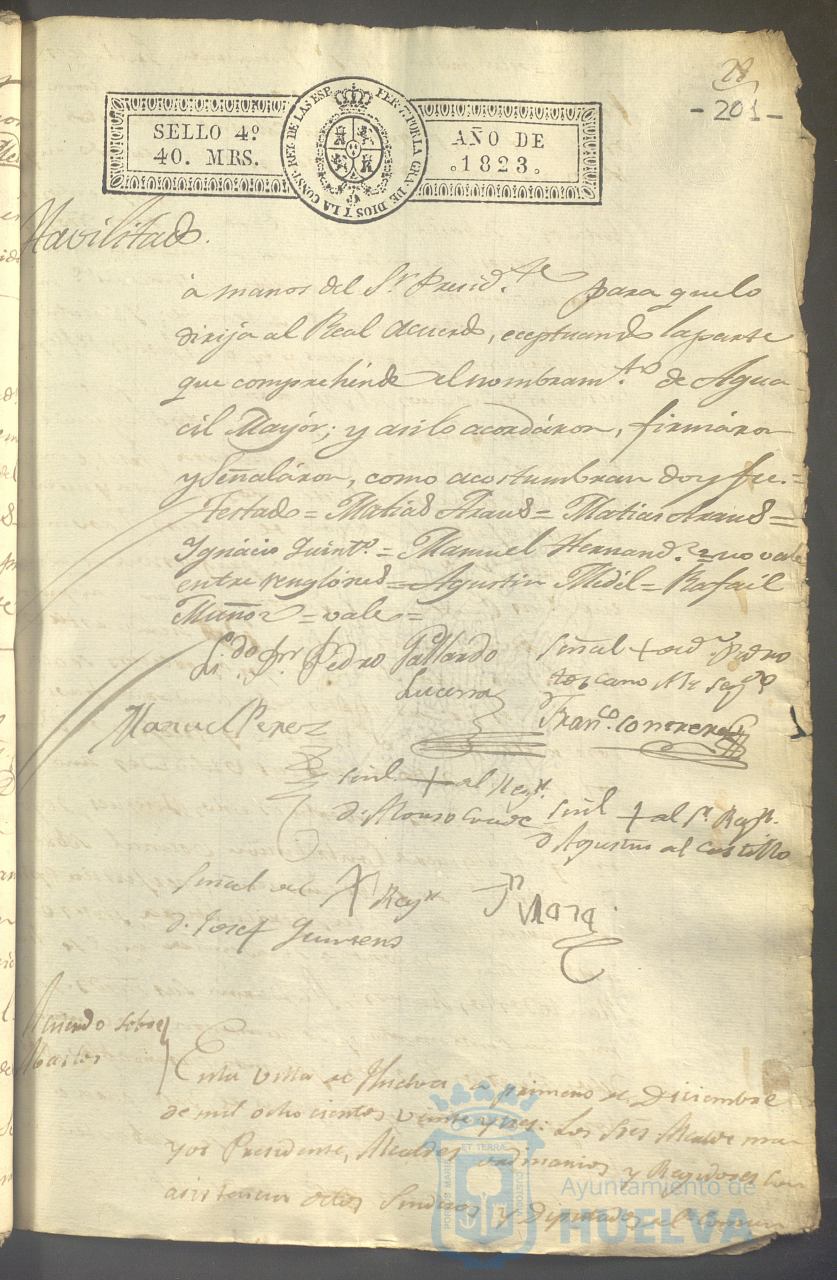 28
-201-
SELLO 4º
40. MRS.
FER. 7. POR LA GRA. DE DIOS Y LA CONST. REY DE LAS ESP.
AÑO DE
1823.
Havilitado.
à manos del Sr. Presid.te para que lo
dirija al Real Acuerdo, eceptuando la parte
que comprehende el nombram.to de Agua-
cil Mayór; y asi lo acordáron, firmáron
y Señaláron, como acostumbran doy fee.=
Testado = Matias = Matias =
Ygnacio Quint.º = Manuel Hernand.z = no vale
entre renglónes = Agustin Midél = Rafaél
Muñoz = vale =
L.do Dn Pedro Gallardo
Lucena
señal + de d.n Pedro
toscano Alc seg.do
Manuel Perez
Fran.co Contreras
señl. + del Rex.r
d. Alonso
señl + del Sr. Rex.r
d Agustin del Castillo
Señal del + Rex.r
d. Josef
Acuerdo sobre
En la Villa de Huelva a primero de Diciembre
de mil ochocientos veinte y tres: Los Sres Alcalde ma-
yor Presidente, Alcaldes ordinarios y Regidores con
asistencia de los Sindicos y Diputados del comun
PORTUS MARIS ET TERRAE CUSTODIA
Ayuntamiento de
HUELVA